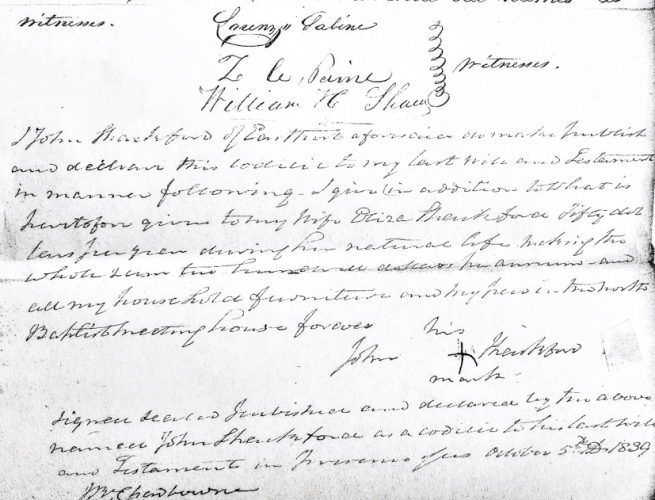 witnesses.
Lorenzo Sabine
Witnesses.
William H Shaw
I John Shackford of Eastport aforesaid do make publish
and declare this codicil to my last will and Testament
in manner following - I give (in addition to what is
heretofore given to my wife Eliza Shackford Fifty dol
lars per year during her natural life making the
whole sum two hundred dollars per annum - and
all my household furniture and my pew in the north
Baptist meeting house forever
his
John + Shackford
mark
Signed sealed published and declared by the above
named John Shackford as a codicil to his last will
and Testament in presence of us October 5th 1839